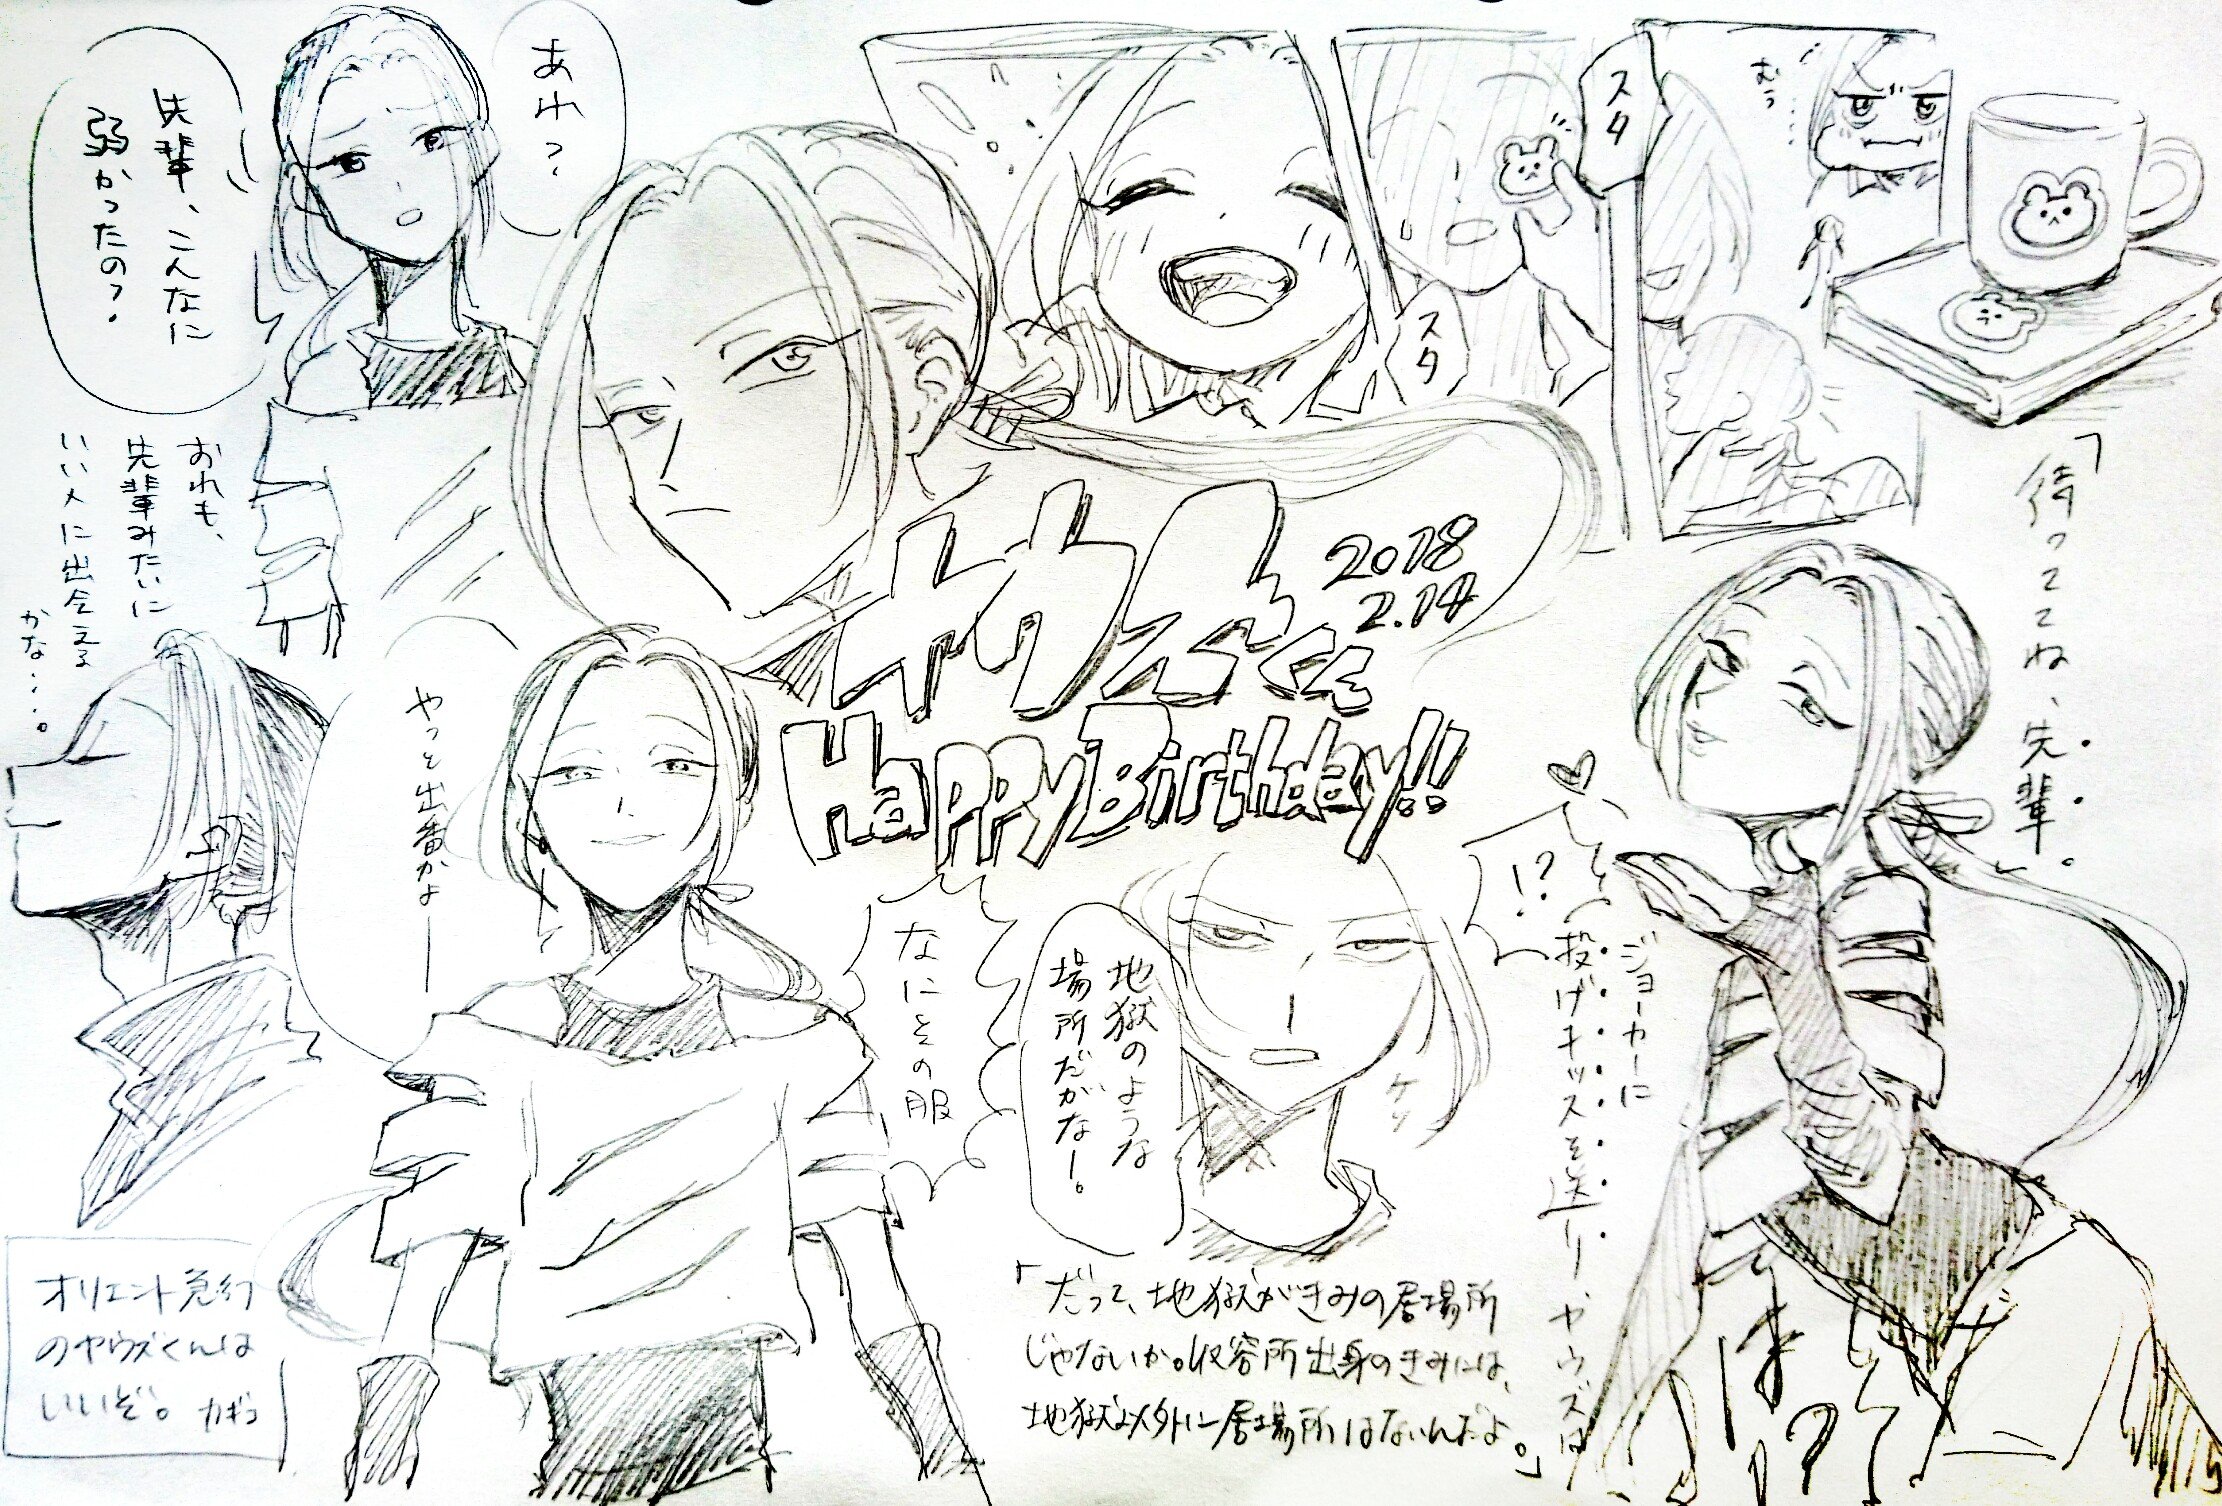 あれ?
先輩、こんなに
弱かったの?
おれも、
先輩みたいに
いい人に出会える
かな…。
スタ
スタ
むぅ……
「待っててね、先輩。」
ヤウズくん
2018
2.14
Happy Birthday!!
やっと出番かよ——
なにその服
地獄のような
場所だがなー。
ケッ
!?
ジョーカーに
投げキッスを送り ヤウズは
は!?
「だって、地獄がきみの居場所
じゃないか。収容所出身のきみには、
地獄以外に居場所はないんだよ。」
オリエント急行
のヤウズくんは
いいぞ。